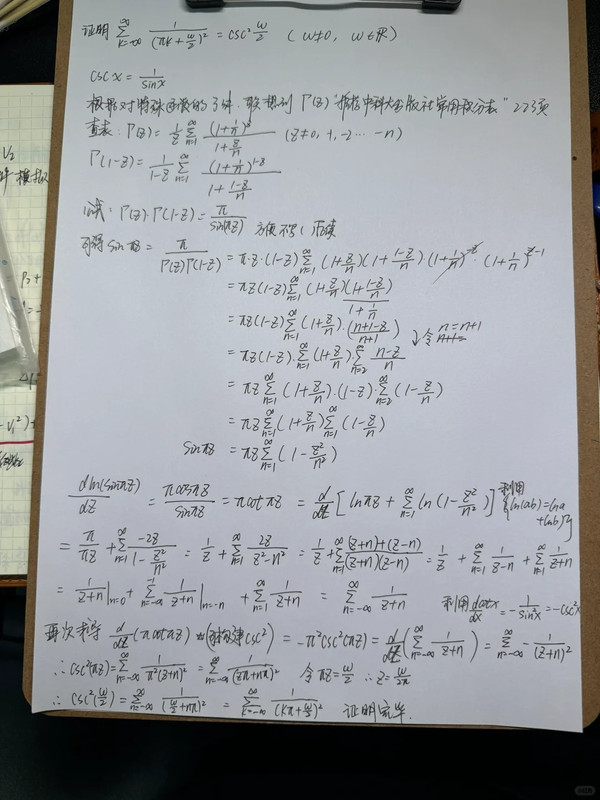 证明 ∑_{k=-∞}^{∞} 1/(πk+w/2)² = csc² w/2 ( w≠0, w∈R )
csc x = 1/sin x
根据对特殊函数的了解, 联想到 Γ(z) "推荐中科大出版社常用积分表" 223页
查表: Γ(z) = 1/z ∑_{n=1}^{∞} (1+1/n)^z / (1+z/n) (z≠0, 1, -2 ··· -n)
Γ(1-z) = 1/(1-z) ∑_{n=1}^{∞} (1+1/n)^{1-z} / (1+(1-z)/n)
Γ(z)·Γ(1-z) = π/sin(πz)
可得 sin πz = π/(Γ(z)Γ(1-z)) = π·z·(1-z) ∑_{n=1}^{∞} (1+z/n)(1+(1-z)/n)(1+1/n)^{-z}·(1+1/n)^{z-1}
= πz(1-z) ∑_{n=1}^{∞} (1+z/n)(1+(1-z)/n) / (1+1/n)
= πz(1-z) ∑_{n=1}^{∞} (1+z/n)·((n+1-z)/(n+1)) ↓令 n=n+1
= πz(1-z)·∑_{n=1}^{∞} (1+z/n) ∑_{n=2}^{∞} (n-z)/n
= πz ∑_{n=1}^{∞} (1+z/n)·(1-z)·∑_{n=2}^{∞} (1-z/n)
= πz ∑_{n=1}^{∞} (1+z/n) ∑_{n=1}^{∞} (1-z/n)
sin πz = πz ∑_{n=1}^{∞} (1-z²/n²)
d ln(sin πz)/dz = π cos πz / sin πz = π cot πz = d/dz [ ln πz + ∑_{n=1}^{∞} ln(1-z²/n²) ] 利用 { ln(ab)=ln a + ln b }
= π/πz + ∑_{n=1}^{∞} -2z/n² / (1-z²/n²) = 1/z + ∑_{n=1}^{∞} 2z/(z²-n²) = 1/z + ∑_{n=1}^{∞} ((z+n)+(z-n))/((z+n)(z-n)) = 1/z + ∑_{n=1}^{∞} 1/(z-n) + ∑_{n=1}^{∞} 1/(z+n)
= 1/(z+n)|_{n=0} + ∑_{n=-∞}^{-1} 1/(z+n)|_{n=-n} + ∑_{n=1}^{∞} 1/(z+n) = ∑_{n=-∞}^{∞} 1/(z+n) 利用 dcotx/dx = -1/sin²x = -csc²x
再次求导 d/dz (π cot πz) (构建csc²) = -π²csc²(πz) = d/dz (∑_{n=-∞}^{∞} 1/(z+n)) = ∑_{n=-∞}^{∞} -1/(z+n)²
∴ csc²(πz) = ∑_{n=-∞}^{∞} 1/(π²(z+n)²) = ∑_{n=-∞}^{∞} 1/(zπ+nπ)² 令 πz = w/2 ∴ z = w/2π
∴ csc²(w/2) = ∑_{n=-∞}^{∞} 1/(w/2+nπ)² = ∑_{k=-∞}^{∞} 1/(kπ+w/2)² 证明完毕.